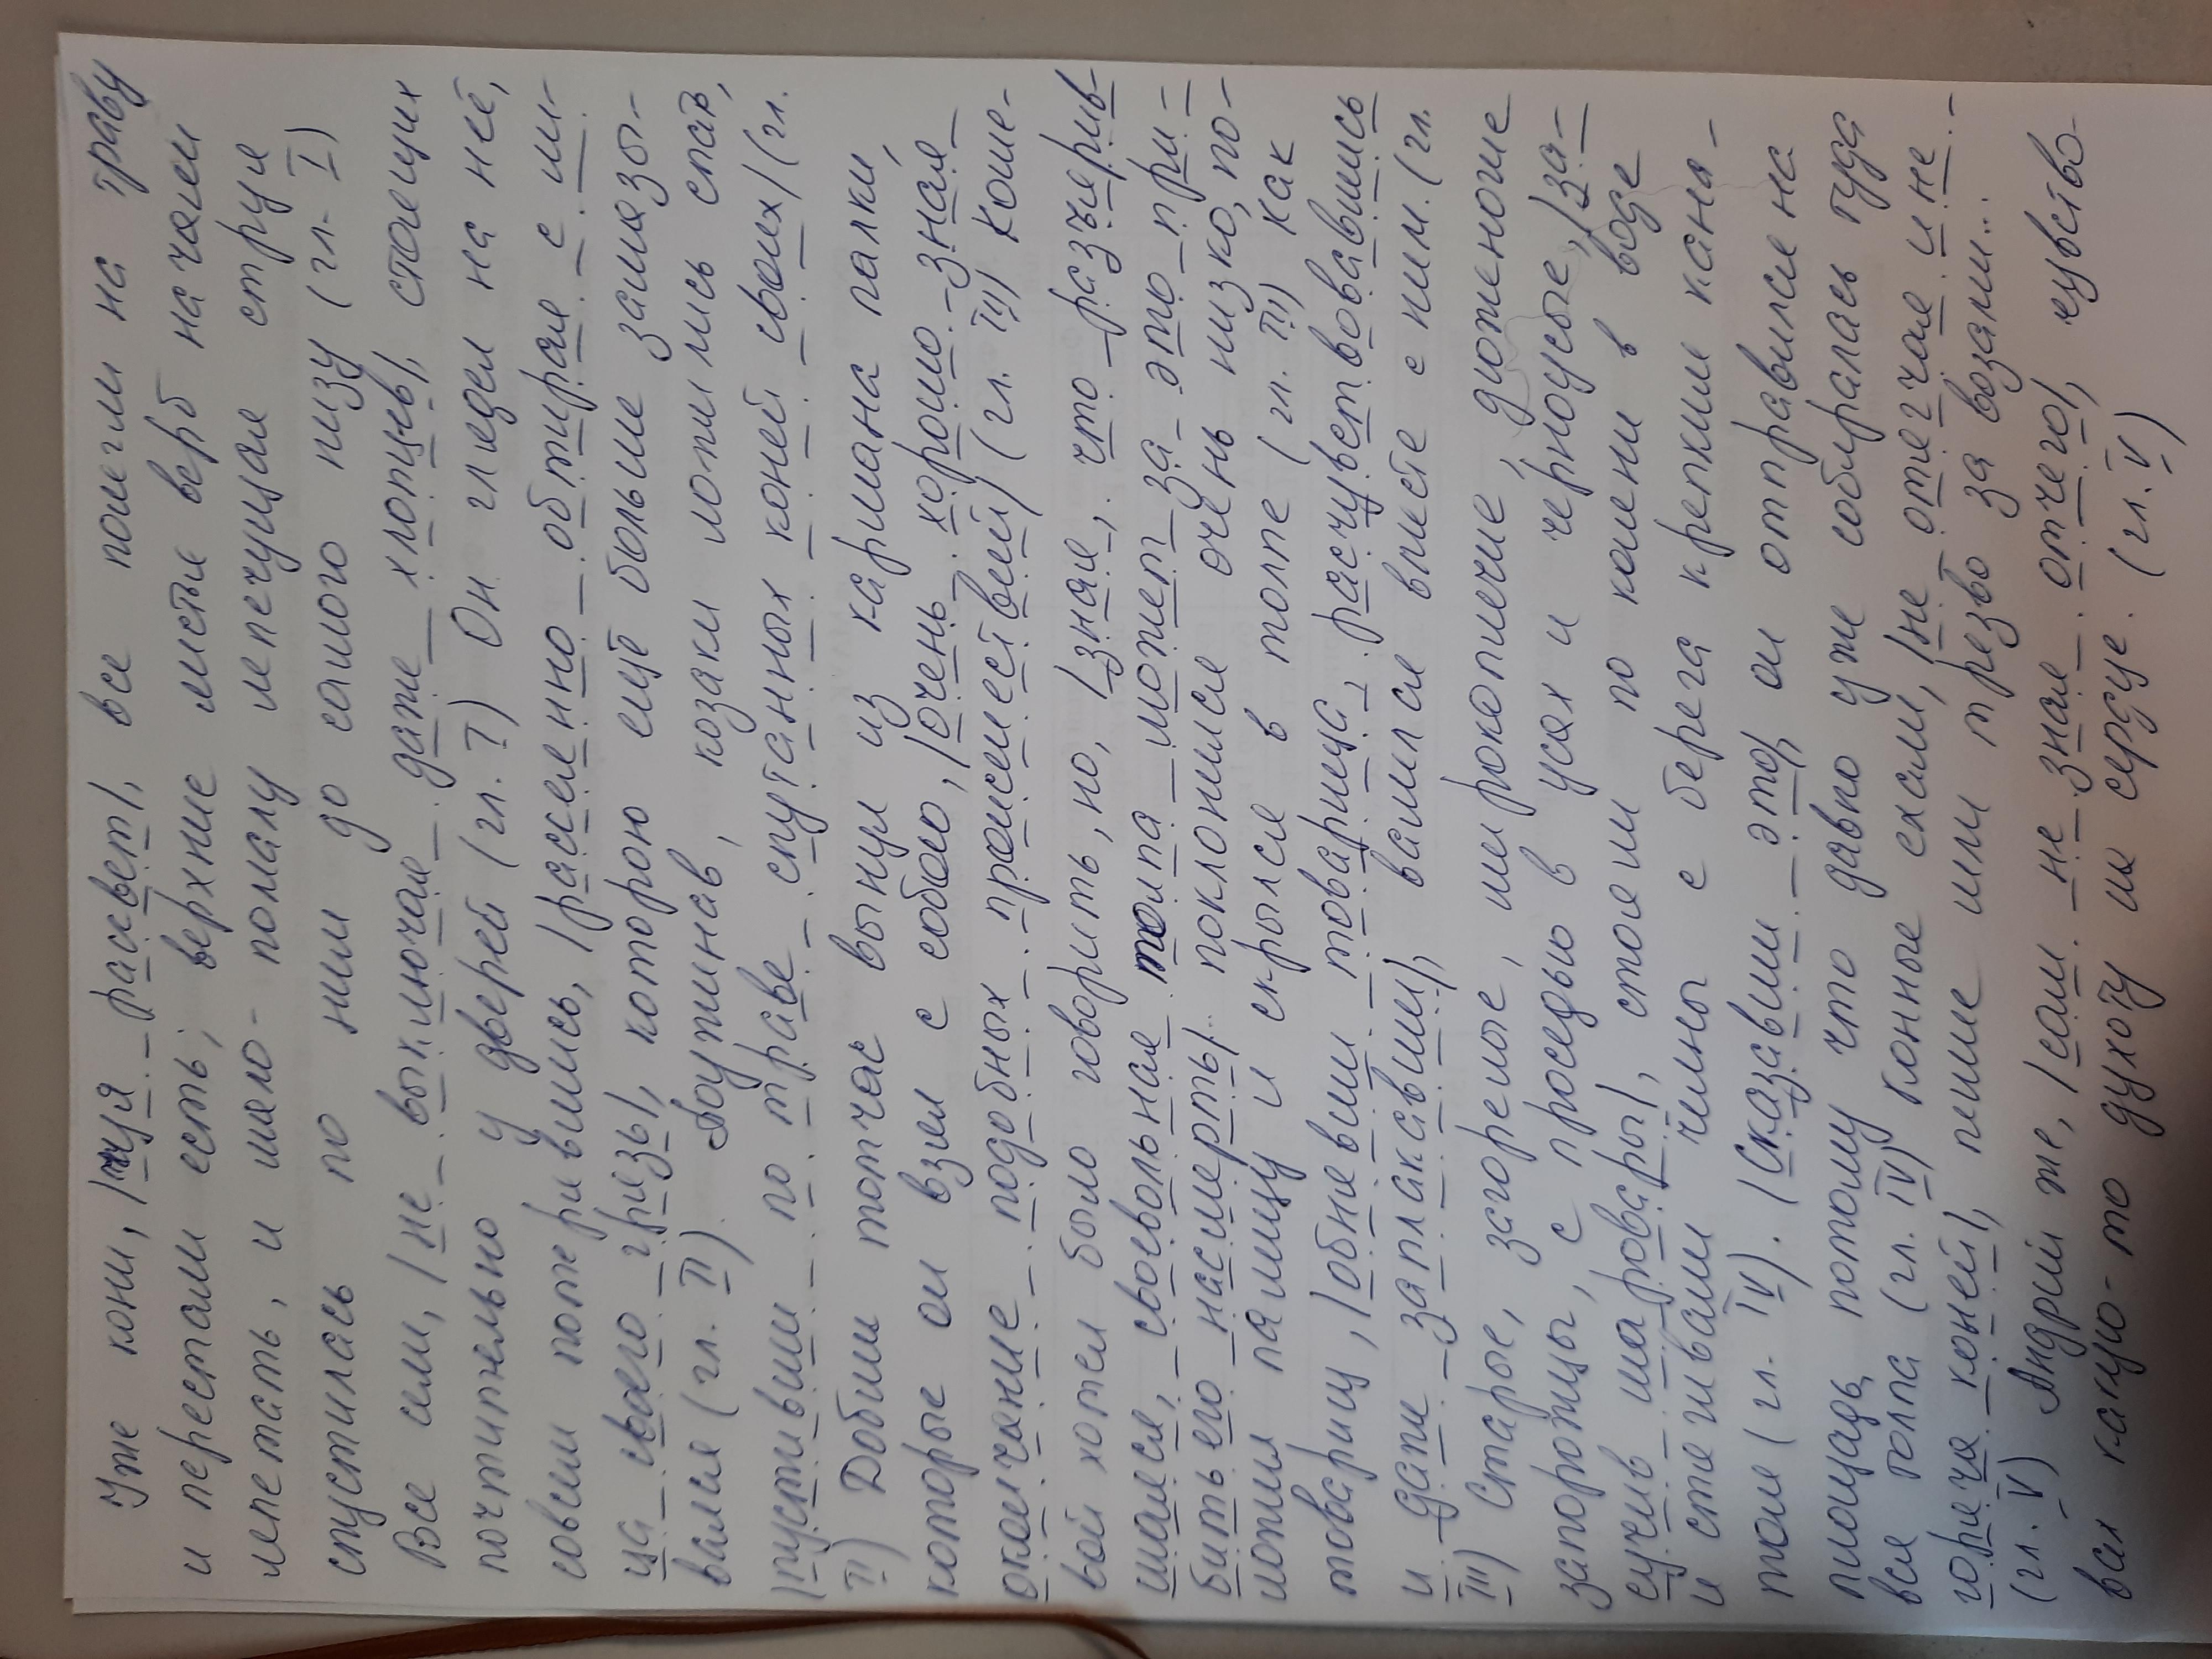 Уже кони, |чуя рассвет|, все полегли на траву
и перестали есть; верхние листья верб начали
лепетать, и мало-помалу лепечущая струя
спустилась по ним до самого низу (гл. I)
Все сели, |не выключая даже хлопцев|, стоящих
почтительно у дверей (гл. I) Он глядел на неё,
совсем потерявшись, |рассеянно обтирая с ли-
ца своего грязь|, которою ещё больше замазы-
вался (гл. II). Отужинав, козаки ложились спать,
|пустивши по траве спутанных коней своих| (гл.
II) Добыли тотчас вынул из кармана палки,
которые он взял с собою, |очень хорошо зная
окончание подобных происшествий| (гл. III) Коше-
вой хотел было говорить, но, |зная, что разъярив-
шаяся, своевольная толпа может за это при-
бить его насмерть| поклонился очень низко, по-
ложил палицу и скрылся в толпе (гл. III) как
товарищ, |обнявши товарища, расчувствовавшись
и даже заплакавши|, валился вместе с ним. (гл.
III) Старые, загорелые, широкоплечие, дюженогие
запорожцы, с проседью в усах и черноусые, |за-
сучив шаровары|, стояли по колени в воде
и стягивали челны с берега крепким кана-
том (гл. IV). |Сказавши это|, он отправился на
площадь, потому что давно уже собиралась туда
вся толпа (гл. IV) Конные ехали, |не отягчая и не
горяча коней|, пешие шли трезво за возами...
(гл. V) Андрий же, |сам не зная отчего|, чувство-
вал какую-то духоту на сердце. (гл. V)